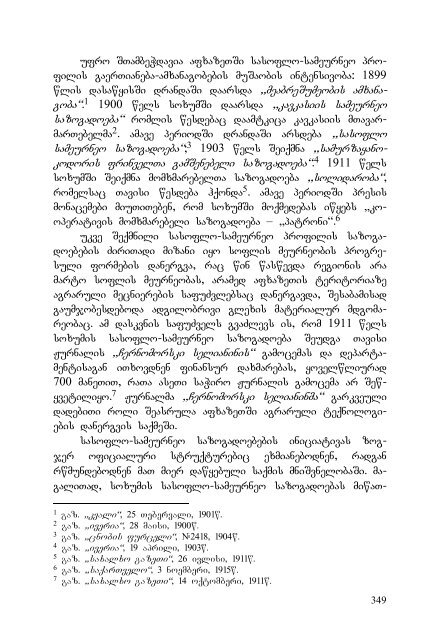 უფრო შთამბეჭდავია აფხაზეთში სასოფლო-სამეურნეო პრო-
ფილის გაერთიანება-ამხანაგობების მუშაობის ინტენსივობა: 1899
წლის დასაწყისში დრანდაში დაარსდა „მეაბრეშუმეობის ამხანა-
გობა“.1 1900 წელს სოხუმში დაარსდა „კავკასიის სამეურნეო
საზოგადოება“ რომლის წესდებაც დაამტკიცა კავკასიის მთავარ-
მართებელმა2. ამავე პერიოდში დრანდაში არსდება „სასოფლო
სამეურნეო საზოგადოება“;3 1903 წელს შეიქმნა „სამურზაყანო-
კოდორის ფრინველთა გამშენებელი საზოგადოება“.4 1911 წელს
სოხუმში შეიქმნა მომხმარებელთა საზოგადოება „სოლიდარობა“,
რომელსაც თავისი წესდება ჰქონდა5. ამავე პერიოდში პრესის
მონაცემები მიუთითებენ, რომ სოხუმში მოქმედებას იწყებს „კო-
ოპერატივის მომხმარებელი საზოგადოება – „პატრონი“.6
უკვე შექმნილი სასოფლო-სამეურნეო პროფილის საზოგა-
დოებების ძირითადი მიზანი იყო სოფლის მეურნეობის პროგრე-
სული ფორმების დანერგვა, რაც წინ წასწევდა რეგიონის არა
მარტო სოფლის მეურნეობას, არამედ აფხაზეთის ტერიტორიაზე
აგრარული მეცნიერების საფუძვლებსაც დანერგავდა, შესაბამისად
გაუმჯობესდებოდა ადგილობრივი გლეხის მატერიალურ მდგომა-
რეობაც. ამ დასკვნის საფუძველს გვაძლევს ის, რომ 1911 წელს
სოხუმის სასოფლო-სამეურნეო საზოგადოება შეუდგა თავისი
ჟურნალის „ჩერნომორსკი სელიანინის“ გამოცემას და დეპარტა-
მენტისაგან ითხოვდნენ ფინანსურ დახმარებას, ყოველწლიურად
700 მანეთით, რათა ასეთი საჭირო ჟურნალის გამოცემა არ შეწ-
ყვეტილიყო.7 ჟურნალმა „ჩერნომორსკი სელიანინმა“ გარკვეული
დადებითი როლი შეასრულა აფხაზეთში აგრარული ტექნოლოგი-
ების დანერგვის საქმეში.
სასოფლო-სამეურნეო საზოგადოებების ინიციატივას ზოგ-
ჯერ ოფიციალური სტრუქტურებიც ეხმიანებოდნენ, რადგან
რწმუნდებოდნენ მათ მიერ დაწყებული საქმის მნიშვნელობაში. მა-
გალითად, სოხუმის სასოფლო-სამეურნეო საზოგადოებას მიწათ-
1 გაზ. „კვალი“, 25 თებერვალი, 1901წ.
2 გაზ. „ივერია“, 28 მაისი, 1900წ.
3 გაზ. „ცნობის ფურცელი“, №2418, 1904წ.
4 გაზ. „ივერია“, 19 აპრილი, 1903წ.
5 გაზ. „სახალხო გაზეთი“, 26 ივლისი, 1911წ.
6 გაზ. „საქართველო“, 3 ნოემბერი, 1915წ.
7 გაზ. „სახალხო გაზეთი“, 14 ოქტომბერი, 1911წ.
349